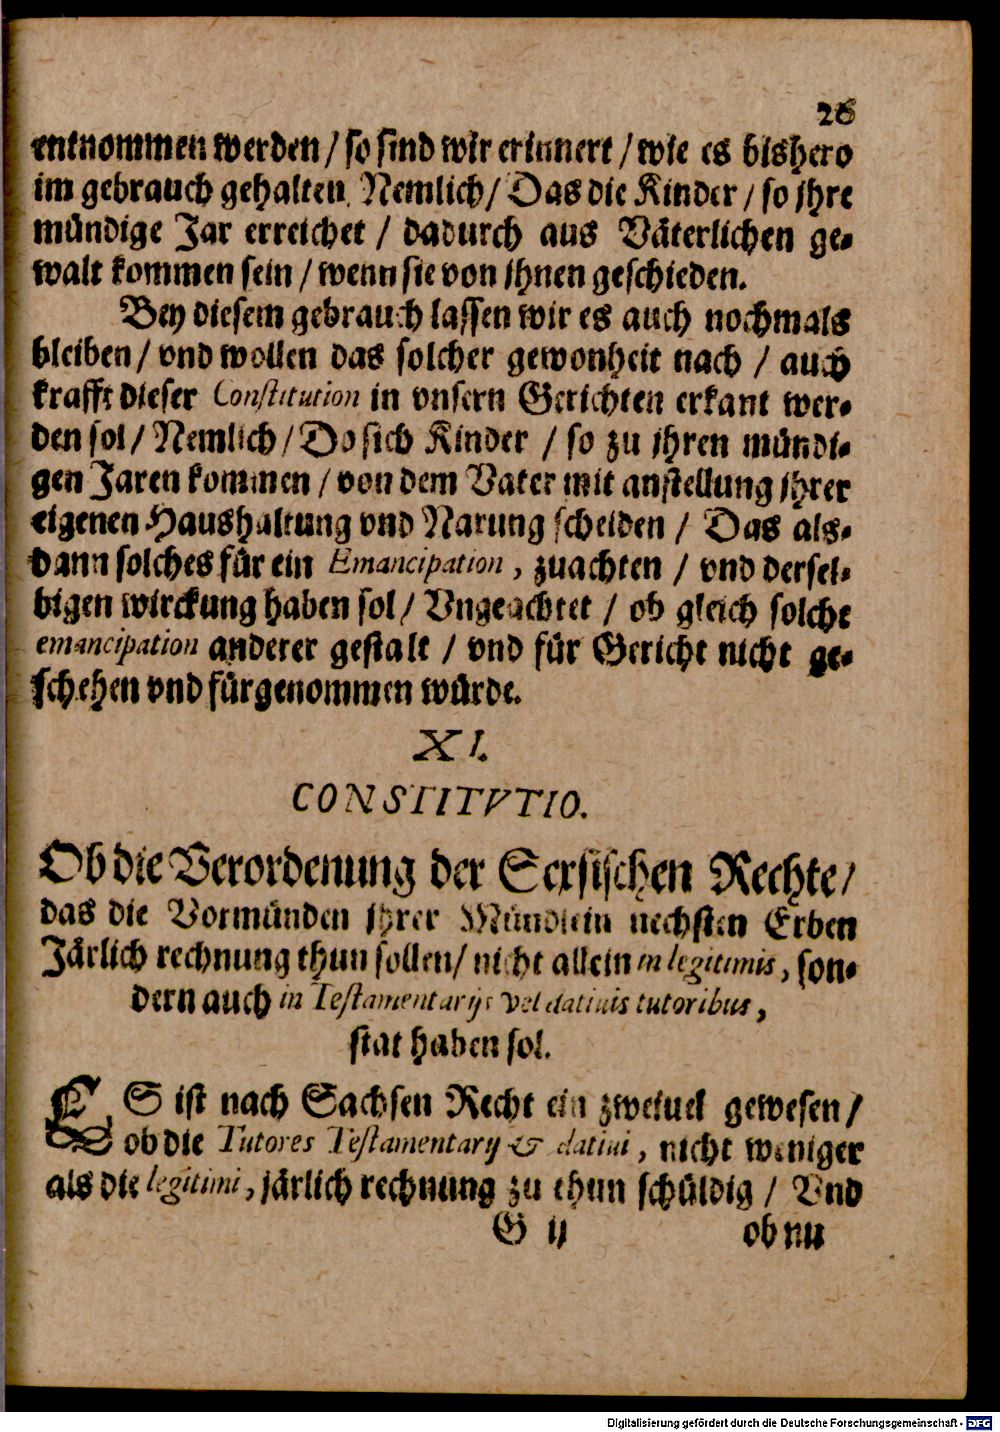 26
entnommen werden / so sind wir erinnert / wie es bishero
im gebrauch gehalten. Nemlich / Das die Kinder / so jhre
mündige Jar erreichet / dadurch aus Väterlichen ge-
walt kommen sein / wenn sie von jhnen geschieden.
Bey diesem gebrauch lassen wir es auch nochmals
bleiben / vnd wollen das solcher gewonheit nach / auch
krafft dieser Constitution in vnsern Gerichten erkant wer-
den sol / Nemlich / Do sich Kinder / so zu jhren mündi-
gen Jaren kommen / von dem Vater mit anstellung jhrer
eigenen Haushaltung vnd Narung scheiden / Das als-
dann solches für ein Emancipation, zuachten / vnd dersel-
bigen wirckung haben sol / Vngeachtet / ob gleich solche
emancipation anderer gestalt / vnd für Gericht nicht ge-
schehen vnd fürgenommen würde.
XI.
CONSTITVTIO.
Ob die Verordenung der Sexsischen Rechte /
das die Vormünden jhrer Mündlein nechsten Erben
Järlich rechnung thun sollen / nicht allein in legitimis, son-
dern auch in Testamentarijs vel datiuis tutoribus,
stat haben sol.
ES ist nach Sachsen Recht ein zweiuel gewesen /
ob die Tutores Testamentarij & datiui, nicht weniger
als die legitimi, järlich rechnung zu thun schüldig / Vnd
G ij ob nu
Digitalisierung gefördert durch die Deutsche Forschungsgemeinschaft - DFG